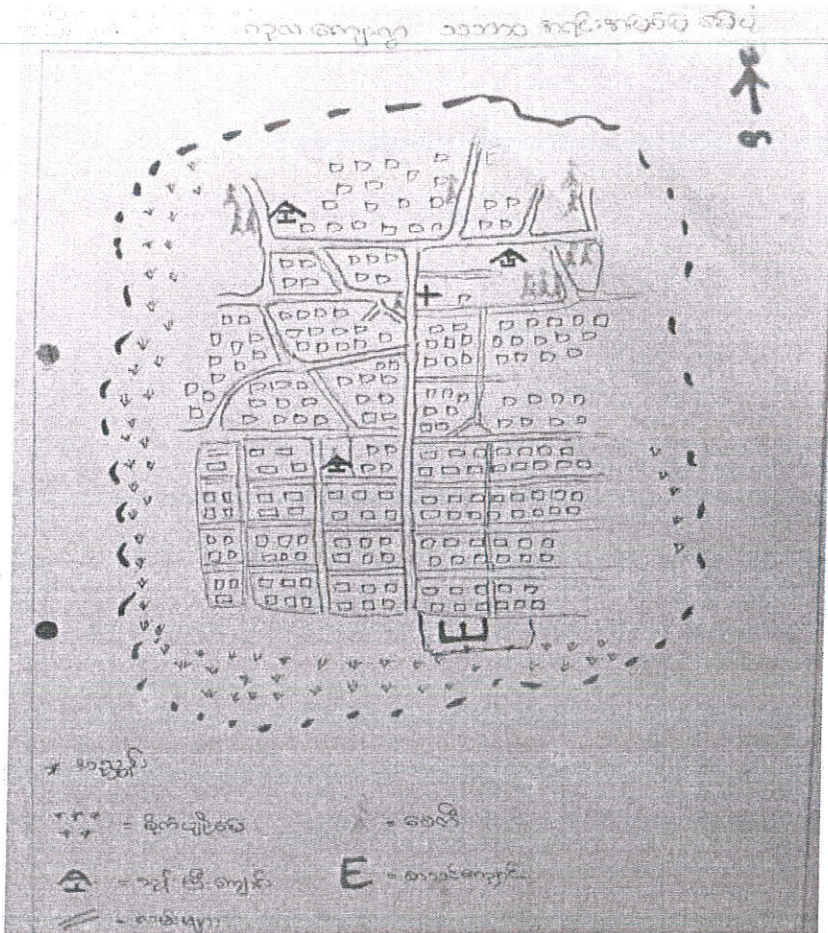 ကျေးရွာ သဘာဝ အရင်းအမြစ်ပြ မြေပုံ
E
* အညွှန်း
= စိုက်ပျိုးမြေ
= စေတီ
= ဘုန်းကြီးကျောင်း
E = စာသင်ကျောင်း
= လမ်းများ